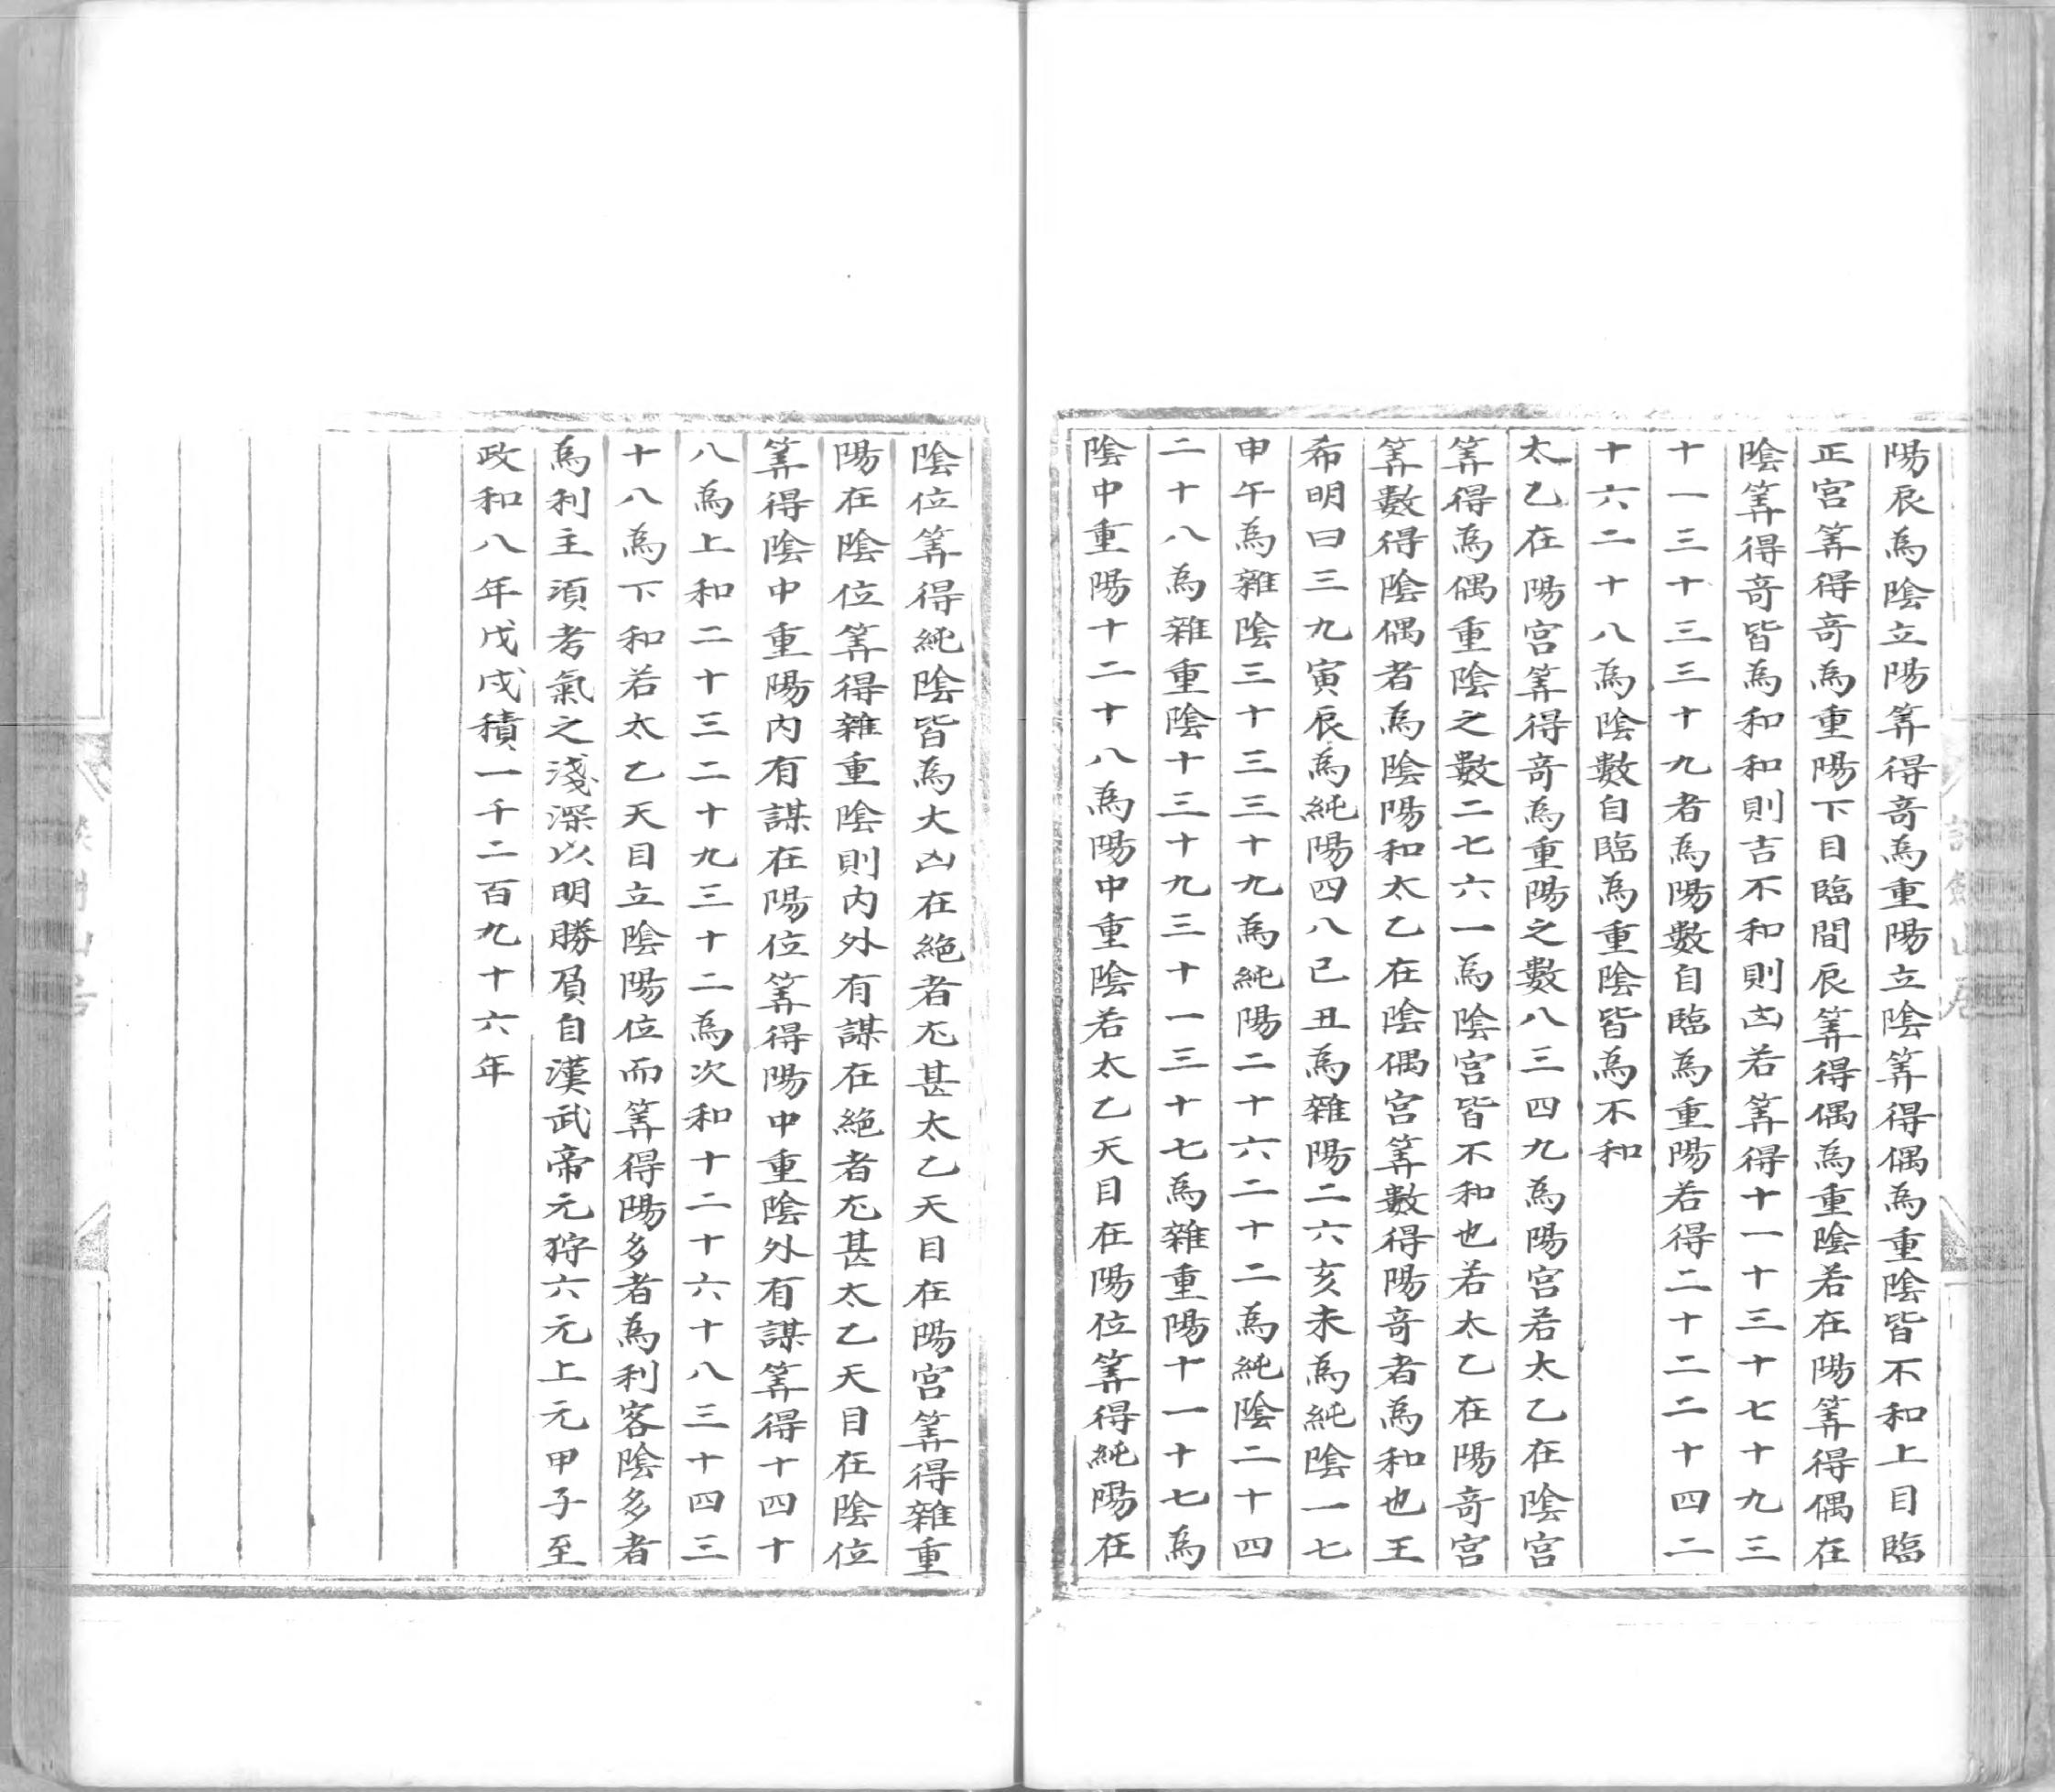 陽辰為陰立陽筭得竒為重陽立陰筭得偶為重陰皆不和上目臨
正宫筭得竒為重陽下目臨間辰筭得偶為重陰若在陽筭得偶在
陰筭得竒皆為和和則吉不和則凶若筭得十一十三十七十九三
十一三十三三十九者為陽數自臨為重陽若得二十二二十四二
十六二十八為陰數自臨為重陰皆為不和
太乙在陽宫筭得竒為重陽之數八三四九為陽宫若太乙在陰宫
筭得為偶重陰之數二七六一為陰宫皆不和也若太乙在陽竒宫
筭數得陰偶者為陰陽和太乙在陰偶宫筭數得陽竒者為和也王
希明曰三九寅辰為純陽四八已丑為雜陽二六亥未為純陰一七
申午為雜陰三十三三十九為純陽二十六二十二為純陰二十四
二十八為雜重陰十三十九三十一三十七為雜重陽十一十七為
陰中重陽十二十八為陽中重陰若太乙天目在陽位筭得純陽在
陰位筭得純陰皆為大凶在絕者尤甚太乙天目在陽宫筭得雜重
陽在陰位筭得雜重陰則内外有謀在絕者尤甚太乙天目在陰位
筭得陰中重陽内有謀在陽位筭得陽中重陰外有謀筭得十四十
八為上和二十三二十九三十二為次和十二十六十八三十四三
十八為下和若太乙天目立陰陽位而筭得陽多者為利客陰多者
為利主須考氣之淺深以明勝負自漢武帝元狩六元上元甲子至
政和八年戊戌積一千二百九十六年